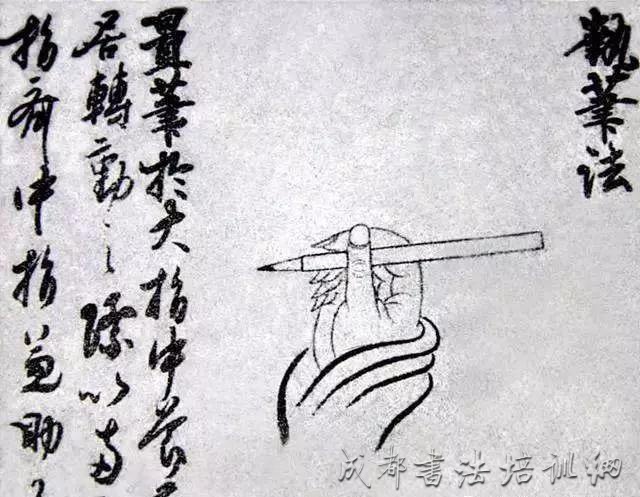 執筆法
置筆於大指中節
居轉動之際以頭
指齊中指兼助
成都書法培训网